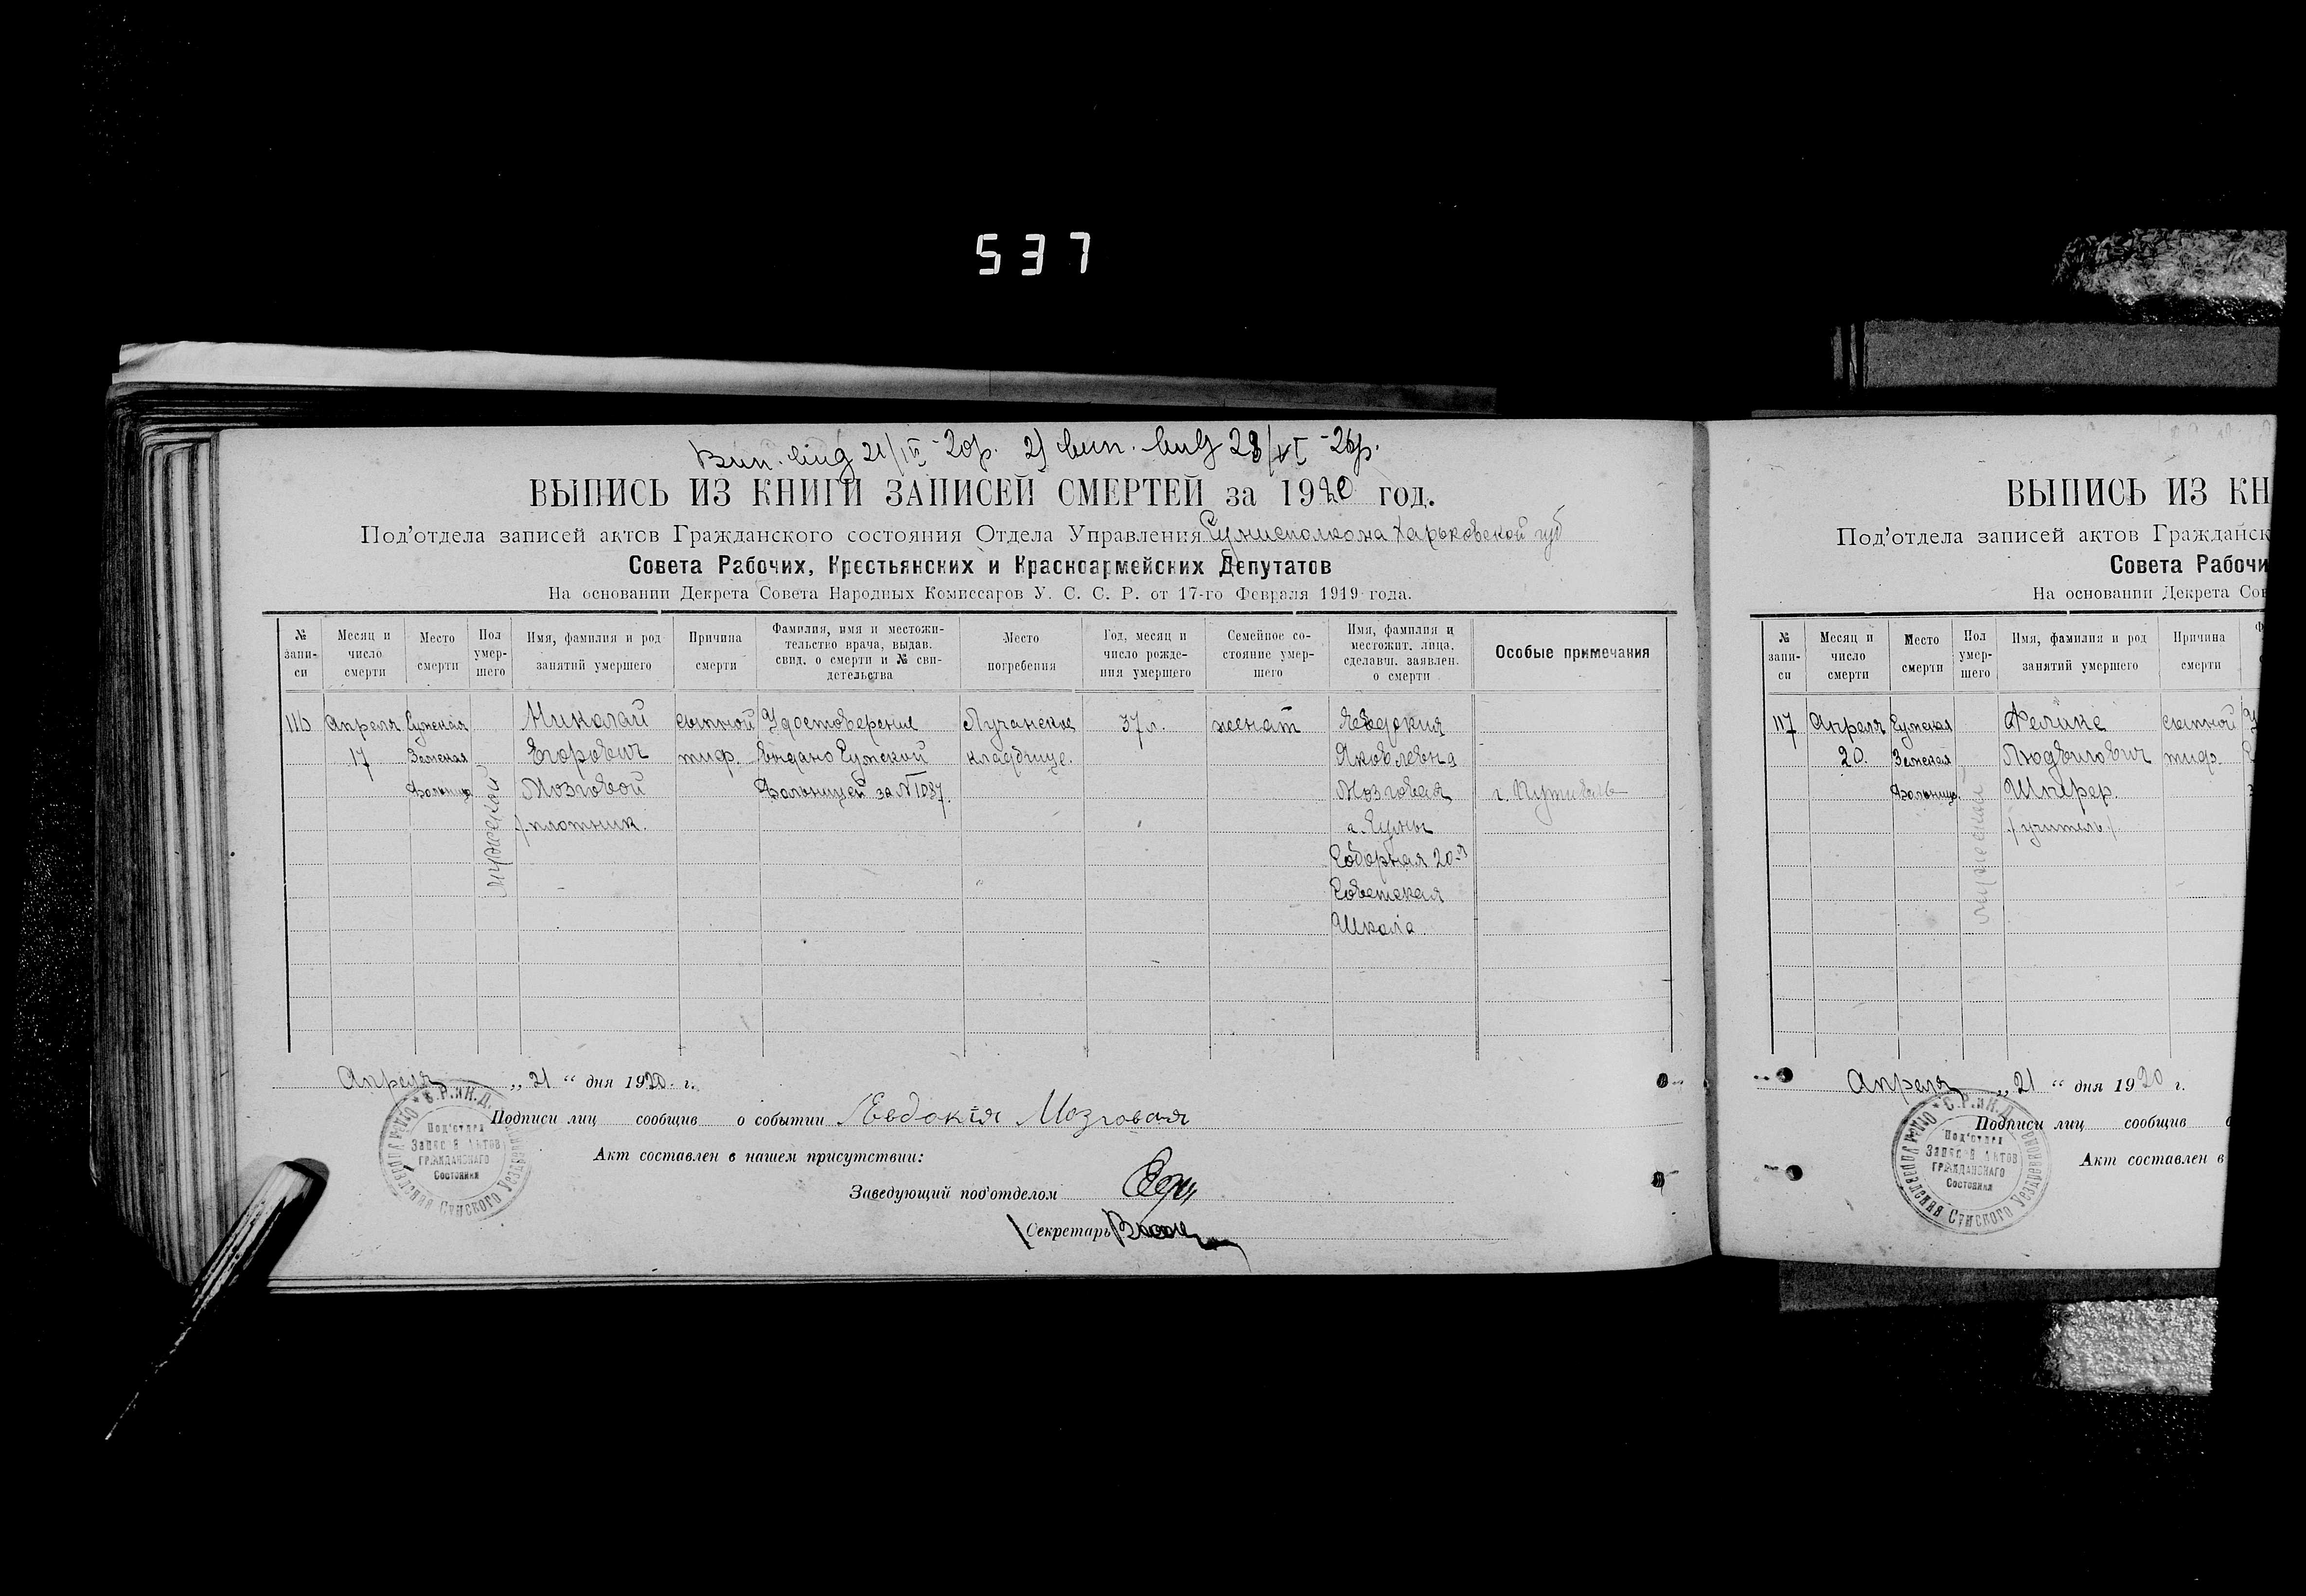 537
Вип. вид 21/IV-20р. 2) вип. вид 28/VI-26р.
ВЫПИСЬ ИЗ КНИГИ ЗАПИСЕЙ СМЕРТЕЙ за 1920 год.
Под'отдела записей актов Гражданского состояния Отдела Управления Сумисполкома Харьковской губ
Совета Рабочих, Крестьянских и Красноармейских Депутатов
На основании Декрета Совета Народных Комиссаров У. С. С. Р. от 17-го Февраля 1919 года.
№ запи- си
Месяц и число смерти
Место смерти
Пол умер- шего
Имя, фамилия и род занятий умершего
Причина смерти
Фамилия, имя и местожи- тельство врача, выдав. свид. о смерти и № сви- детельства
Место погребения
Год, месяц и число рожде- ния умершего
Семейное со- стояние умер- шего
Имя, фамилия и местожит. лица, сделавш. заявлен. о смерти
Особые примечания
116 Апреля Сумская Николай сыпной Удостоверение Лучанское 37 л. женат Явдокия
17 Земская Егорович тиф. выдано Сумской кладбище. Яковлевна
больница Мозговой больницей за № 1037. Мозговая г. Путивль
мужской
/плотник. г. Сумы
Соборная 20-я
Советская
Школа
Апреля „ 21 “ дня 1920 г.
Подписи лиц сообщив о событии Евдокія Мозговая
Акт составлен в нашем присутствии:
Заведующий под'отделом
Секретарь
С.Р.иК.Д.
Отдел Управления Сумского Уездревкома
Под'отдел
Записей Актов
Гражданского
Состояния
ВЫПИСЬ ИЗ КН
Под'отдела записей актов Гражданск
Совета Рабочи
На основании Декрета Сов
№ запи- си
Месяц и число смерти
Место смерти
Пол умер- шего
Имя, фамилия и род занятий умершего
Причина смерти
117 Апреля Сумская Феликс сыпной
20. Земская Людвигович тиф.
больница. Шпфер.
мужской
/учитель/
Апреля „ 21 “ дня 1920 г.
Подписи лиц сообщив
Акт составлен в
С.Р.иК.Д.
Отдел Управления Сумского Уездревкома
Под'отдел
Записей Актов
Гражданского
Состояния